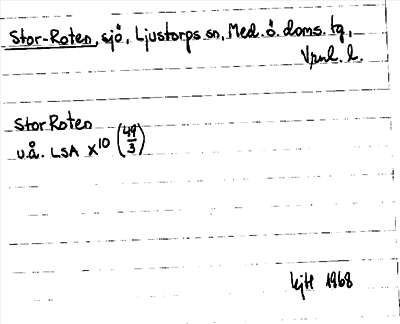 Stor-Roten, sjö, Ljustorps sn, Med. ö. doms. tg,
Vrnl. l.
Stor Roten
u.å. LSA X10 (49/3)
kjH 1968